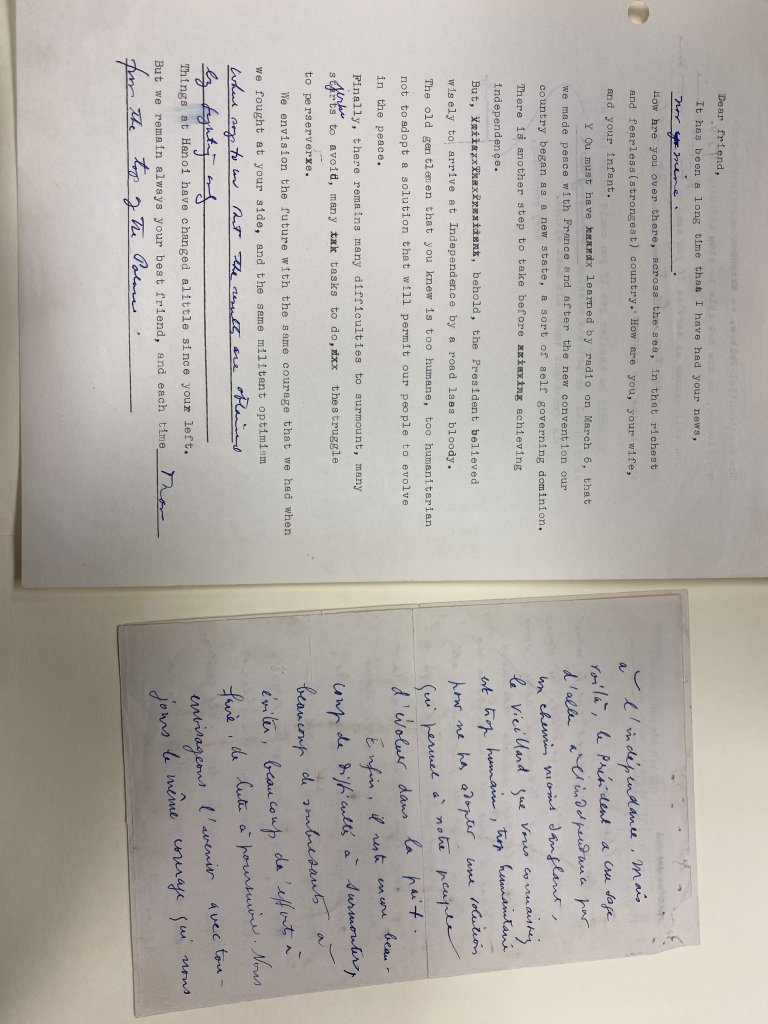 Dear friend,
It has been a long time that I have had your news,
nor mine.
How are you over there, across the sea, in that richest
and fearless(strongest) country. How are you, your wife,
and your infant.
Y Ou must have learned by radio on March 6, that
we made peace with France and after the new convention our
country began as a new state, a sort of self governing dominion.
There is another step to take before achieving
independence.
But, behold, the President believed
wisely to arrive at Independence by a road lses bloody.
The old gentlemen that you knew is too humane, too humanitarian
not to adopt a solution that will permit our people to evolve
in the peace.
Finally, there remains many difficulties to surmount, many
to avoid, many tasks to do, thestruggle
to perserverxe.
We envision the future with the same courage that we had when
we fought at your side, and the same militant optimism
says to us that the results are obtained
by fighting only
Things at Hanoi have changed alittle since your left.
But we remain always your best friend, and each time
from the top of the Palace.
à l'indépendance. Mais
voilà, le Président a cru sage
d'aller à l'indépendance par
un chemin moins sanglant,
le vieillard que vous connaissez
est trop humain, trop humanitaire
pour ne pas adopter une solution
qui permet à notre peuple
d'évoluer dans la paix.
Enfin, il reste encore beau-
coup de difficultés à surmonter,
beaucoup de soubresauts à
éviter, beaucoup d'efforts à
faire, de lutte à poursuivre. Nous
envisageons l'avenir avec tou-
jours le même courage qui nous